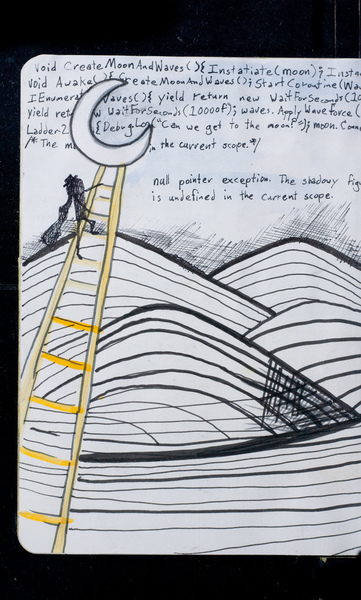 void CreateMoonAndWaves(){ Instatiate(moon); Insta
Void Awake() { Create MoonAndWaves(); Start Coroutine (Wa
IEnumerat Waves(){ yield return new WaitForSeconds(10
yield ret w WaitForSeconds(10000f); waves. Apply Waveforce (
Ladder2 { Debug.Log("Can we get to the moon? "); moon. Com
/* The m in the current scope. */
null pointer exception. The shadowy fig
is undefined in the current scope.